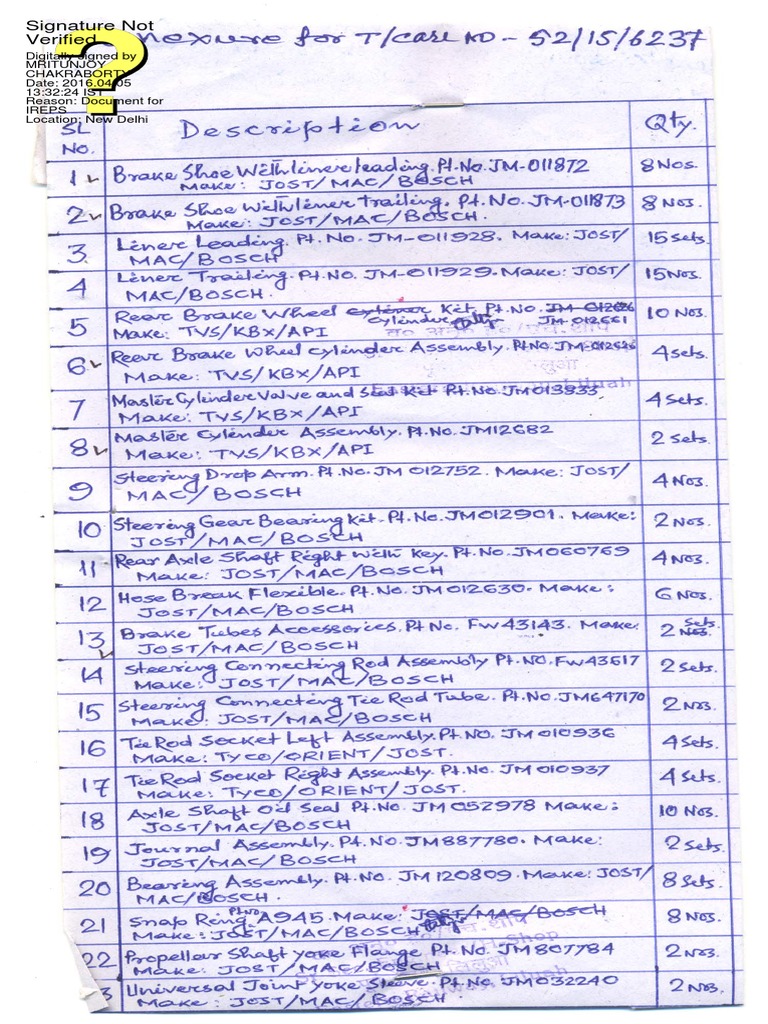 Signature Not
Verified
Digitally signed by
MRITUNJOY
CHAKRABORTY
Date: 2016.04.05
13:32:24 IST
Reason: Document for
IREPS
Location: New Delhi
nexure for T/case NO - 52/15/6237
SL No. Description Qty.
1 Brake Shoe With liner leading. Pt. No. JM-011872 8 Nos.
Make: JOST/MAC/BOSCH
2 Brake Shoe With liner trailing. Pt. No. JM-011873 8 Nos.
Make: JOST/MAC/BOSCH.
3 Liner Leading. Pt. No. JM-011928. Make: JOST/ 15 Sets.
MAC/BOSCH
4 Liner Trailing. Pt. No. JM-011929. Make: JOST/ 15 Nos.
MAC/BOSCH.
5 Rear Brake Wheel Kit. Pt. No. JM-012626 10 Nos.
Cylinder JM-012661
Make: TVS/KBX/API
6 Rear Brake Wheel cylinder Assembly. Pt. No. JM-012626 4 Sets.
Make: TVS/KBX/API
7 Master Cylinder Valve and Seal Kit Pt. No. JM013833. 4 Sets.
Make: TVS/KBX/API
8 Master Cylinder Assembly. Pt. No. JM12682 2 Sets.
Make: TVS/KBX/API
9 Steering Drop Arm. Pt. No. JM 012752. Make: JOST/ 4 Nos.
MAC/BOSCH
10 Steering Gear Bearing Kit. Pt. No. JM012901. Make: 2 Nos.
JOST/MAC/BOSCH
11 Rear Axle Shaft Right With Key. Pt. No. JM060769 4 Nos.
Make: JOST/MAC/BOSCH
12 Hose Break Flexible. Pt. No. JM 012630. Make: 6 Nos.
JOST/MAC/BOSCH
13 Brake Tubes Accessories. Pt No. FW43143. Make: 2 Sets. Nos.
JOST/MAC/BOSCH
14 Steering Connecting Rod Assembly Pt. NO. FW43617 2 Sets.
Make: JOST/MAC/BOSCH
15 Steering Connecting Tie Rod Tube. Pt. No. JM647170 2 Nos.
Make: JOST/MAC/BOSCH
16 Tie Rod Socket Left Assembly. Pt. NO. JM 010936 4 Sets.
Make: TYCO/ORIENT/JOST.
17 Tie Rod Socket Right Assembly. Pt. No. JM 010937 4 Sets.
Make: TYCO/ORIENT/JOST.
18 Axle Shaft Oil Seal Pt. No. JM 052978 Make: 10 Nos.
JOST/MAC/BOSCH
19 Journal Assembly. Pt. No. JM887780. Make: 2 Sets.
JOST/MAC/BOSCH
20 Bearing Assembly. Pt. No. JM 120809. Make: JOST/ 8 Sets.
MAC/BOSCH.
21 Snap Ring Pt. No. A945. Make: JOST/MAC/BOSCH 8 Nos.
Make: JOST/MAC/BOSCH
22 Propellar Shaft yoke Flange Pt. No. JM 807784 2 Nos.
Make: JOST/MAC/BOSCH
3 Universal Joint yoke Sleeve. Pt. No. JM032240 2 Nos.
Make: JOST/MAC/BOSCH